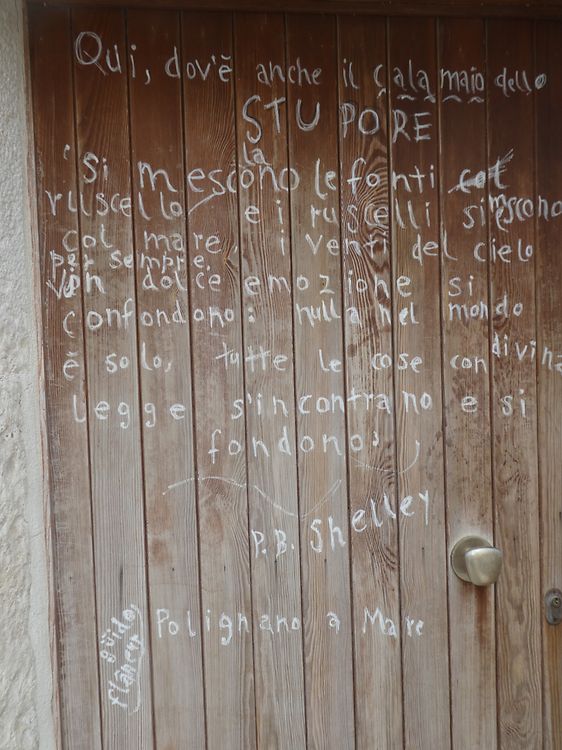 Qui, dov'è anche il calamaio dello
STUPORE
"Si mescono le fonti col
ruscello, e i ruscelli si mescono
col mare, i venti del cielo
per sempre
in dolce emozione si
confondono: nulla nel mondo
è solo, tutte le cose con divina
legge s'incontrano e si
fondono"
P.B. Shelley
Polignano a Mare
guido,
flâneur